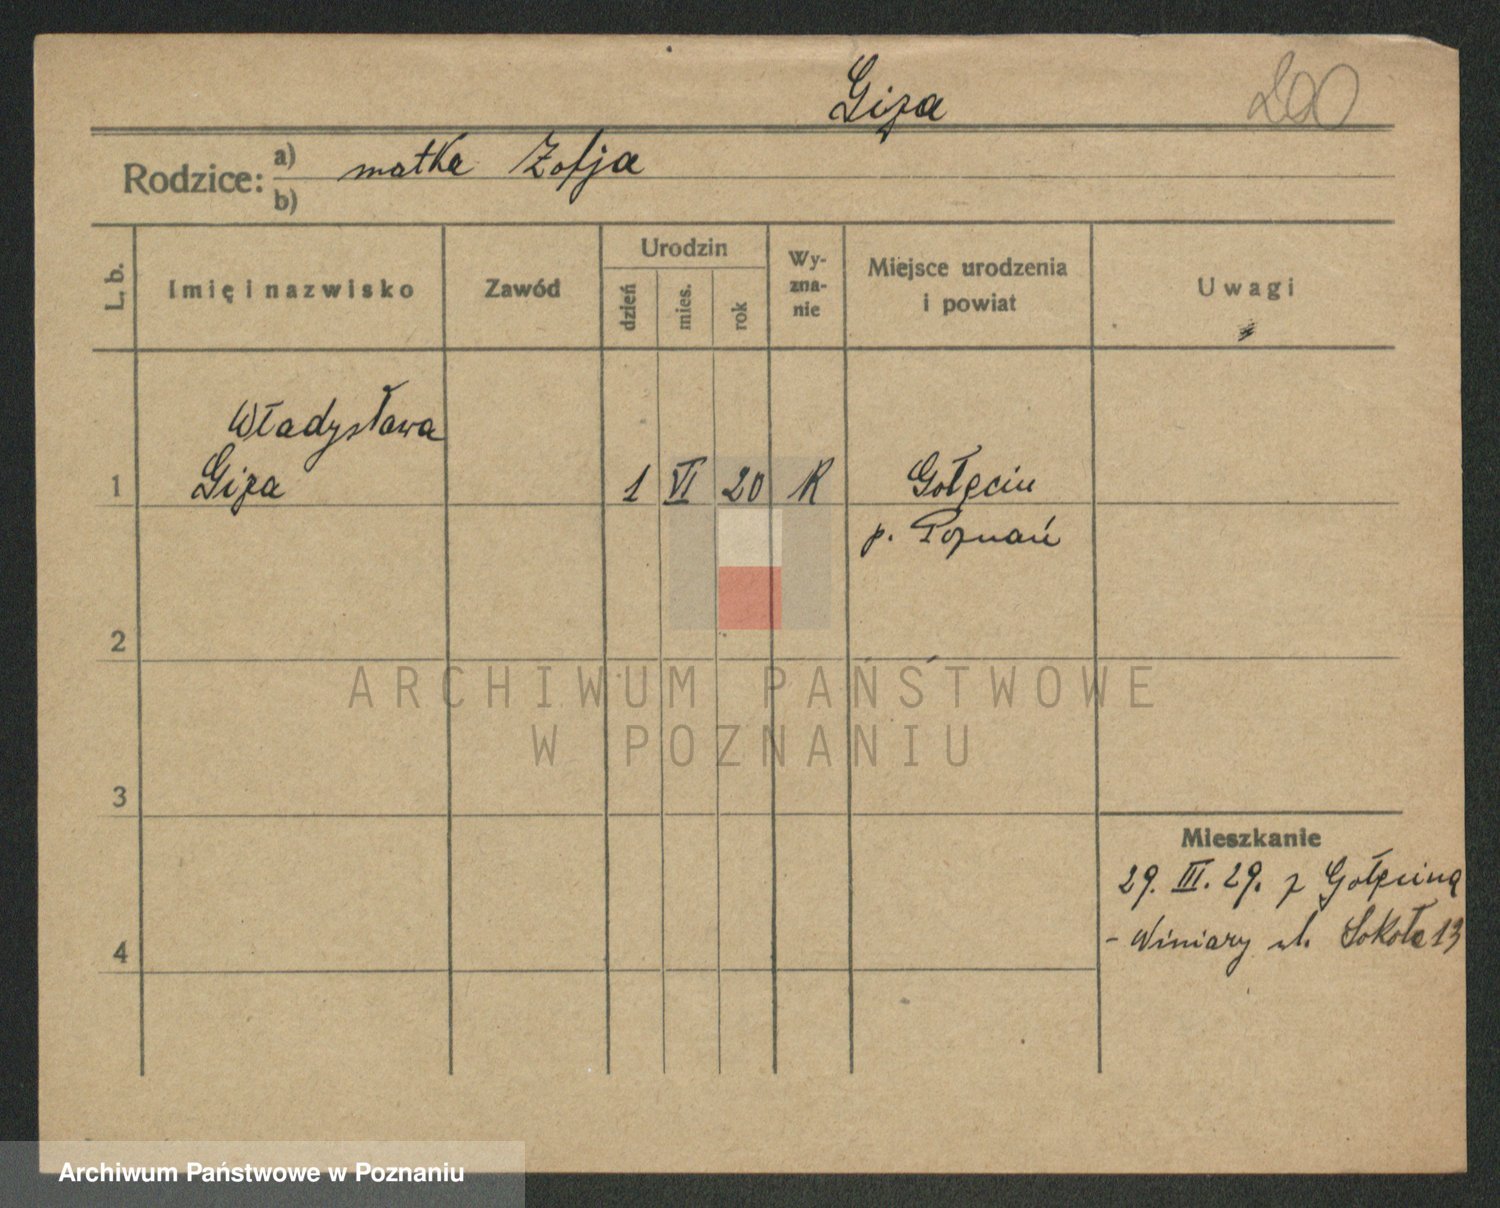 Giza
200
Rodzice: a) matka Zofja
b)
L. b.
Imię i nazwisko
Zawód
Urodzin
dzień
mies.
rok
Wy-
zna-
nie
Miejsce urodzenia
i powiat
Uwagi
Władysława
1 Giza 1 VI 20 R Gołęcin
p. Poznań
2
3
4
Mieszkanie
29. III. 29. z Gołęcina
- Winiary ul. Sokoła 13
ARCHIWUM PAŃSTWOWE
W POZNANIU
Archiwum Państwowe w Poznaniu